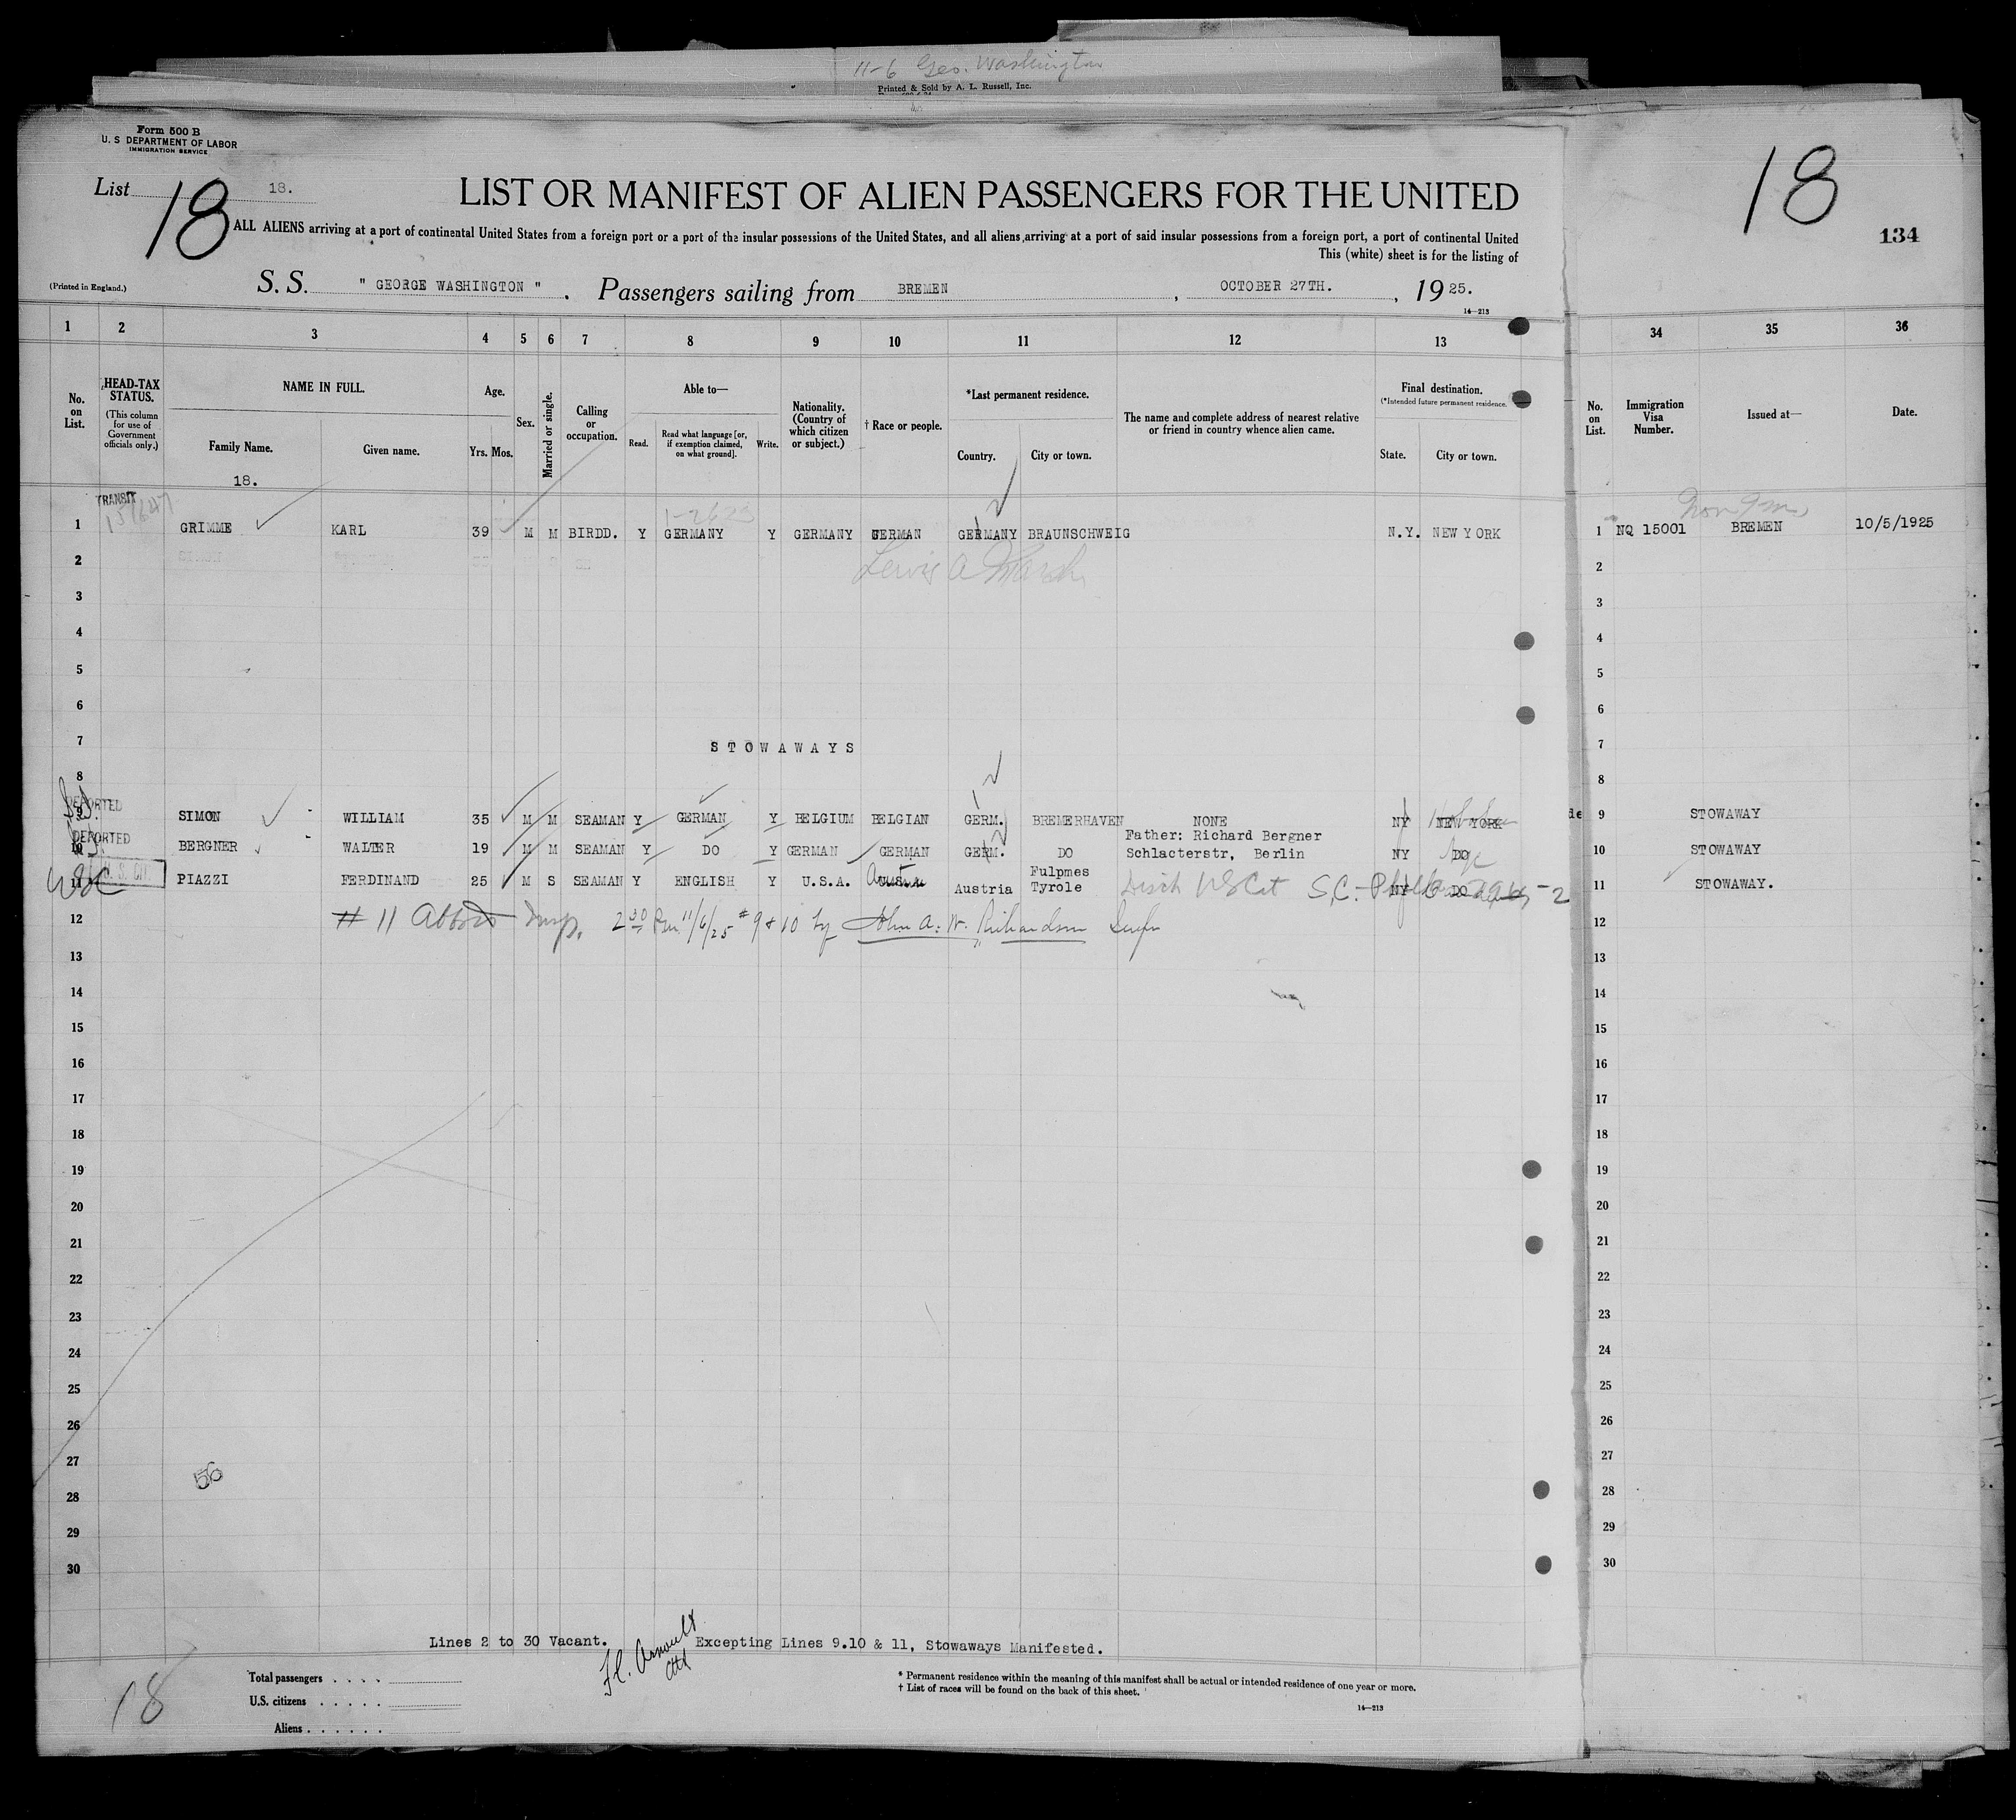 11-6 Geo. Washington
Printed & Sold by A. L. Russell, Inc.
Form 500 B
U. S DEPARTMENT OF LABOR
IMMIGRATION SERVICE
List 18.
18
LIST OR MANIFEST OF ALIEN PASSENGERS FOR THE UNITED
18
134
ALL ALIENS arriving at a port of continental United States from a foreign port or a port of the insular possessions of the United States, and all aliens arriving at a port of said insular possessions from a foreign port, a port of continental United
This (white) sheet is for the listing of
(Printed in England.)
S. S. " GEORGE WASHINGTON " . Passengers sailing from BREMEN , OCTOBER 27TH. , 19 25.
14—213
1 2 3 4 5 6 7 8 9 10 11 12 13 34 35 36
No. on List.
HEAD-TAX STATUS.
(This column for use of Government officials only.)
NAME IN FULL.
Family Name.
18.
Given name.
Age.
Yrs. Mos.
Sex.
Married or single.
Calling or occupation.
Able to—
Read.
Read what language [or, if exemption claimed, on what ground].
Write.
Nationality. (Country of which citizen or subject.)
† Race or people.
*Last permanent residence.
Country.
City or town.
The name and complete address of nearest relative or friend in country whence alien came.
Final destination.
(*Intended future permanent residence.
State.
City or town.
No. on List.
Immigration Visa Number.
Issued at—
Date.
TRANSIT
1 GRIMME KARL 39 M M BIRDD. Y GERMANY Y GERMANY GERMAN GERMANY BRAUNSCHWEIG N.Y. NEW YORK 1 NQ 15001 BREMEN 10/5/1925
2 Lewis A 2
3 3
4 4
5 5
6 6
7 STOWAWAYS 7
8 8
DEPORTED
9 SIMON WILLIAM 35 M M SEAMAN Y GERMAN Y BELGIUM BELGIAN GERM. BREMERHAVEN NONE NY NEW YORK 9 STOWAWAY
DEPORTED
Father: Richard Bergner
10 BERGNER WALTER 19 M M SEAMAN Y DO Y GERMAN GERMAN GERM. DO Schlacterstr, Berlin NY DO 10 STOWAWAY
U. S. CIT.
USC
11 PIAZZI FERDINAND 25 M S SEAMAN Y ENGLISH Y U.S.A. Austria Fulpmes Tyrole NY DO 11 STOWAWAY.
12 # 11 Insp. 2 30 Pm 11/6/25 # 9 & 10 by John A. W. Richardson 12
13 13
14 14
15 15
16 16
17 17
18 18
19 19
20 20
21 21
22 22
23 23
24 24
25 25
26 26
27 27
56
28 28
29 29
30 30
Lines 2 to 30 Vacant. Excepting Lines 9.10 & 11, Stowaways Manifested.
18
Total passengers . . . .
U.S. citizens . . . . .
Aliens . . . . . .
* Permanent residence within the meaning of this manifest shall be actual or intended residence of one year or more.
† List of races will be found on the back of this sheet.
14—213